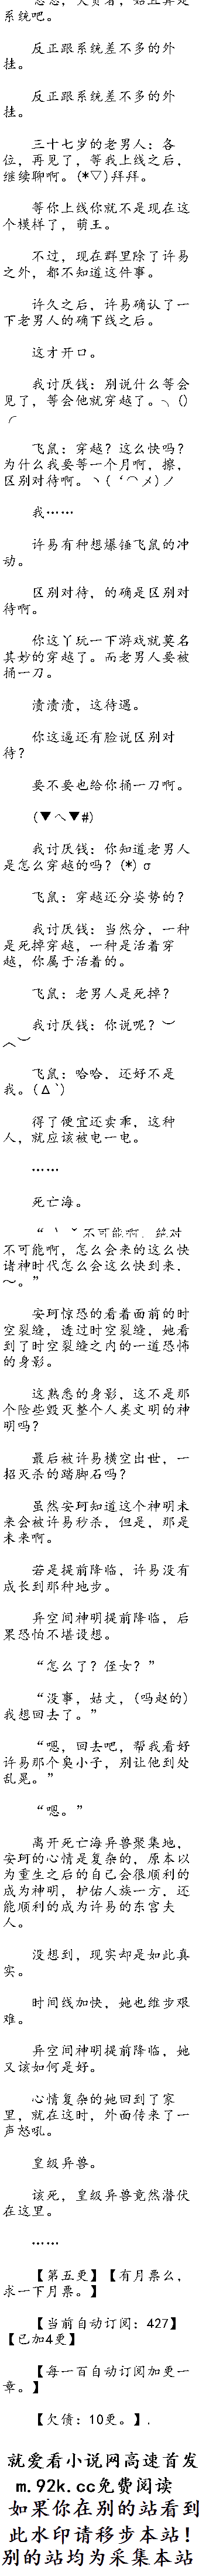 系统吧。
反正跟系统差不多的外
挂。
反正跟系统差不多的外
挂。
三十七岁的老男人：各
位，再见了，等我上线之后，
继续聊啊。(*▽)拜拜。
等你上线你就不是现在这
个模样了，萌王。
不过，现在群里除了许易
之外，都不知道这件事。
许久之后，许易确认了一
下老男人的确下线之后。
这才开口。
我讨厌钱：别说什么等会
见了，等会他就穿越了。╮()
╭
飞鼠：穿越？这么快吗？
为什么我要等一个月啊，擦，
区别对待啊。ヽ(‘⌒メ)ノ
我……
许易有种想爆锤飞鼠的冲
动。
区别对待，的确是区别对
待啊。
你这丫玩一下游戏就莫名
其妙的穿越了。而老男人要被
捅一刀。
渍渍渍，这待遇。
你这逼还有脸说区别对
待？
要不要也给你捅一刀啊。
(▼ヘ▼#)
我讨厌钱：你知道老男人
是怎么穿越的吗？(*)σ
飞鼠：穿越还分姿势的？
我讨厌钱：当然分，一种
是死掉穿越，一种是活着穿
越，你属于活着的。
飞鼠：老男人是死掉？
我讨厌钱：你说呢？︶
︿︶
飞鼠：哈哈，还好不是
我。(Δ`)
得了便宜还卖乖，这种
人，就应该被电一电。
……
死亡海。
不可能啊，绝对
不可能啊，怎么会来的这么快
诸神时代怎么会这么快到来，
～。”
安珂惊恐的看着面前的时
空裂缝，透过时空裂缝，她看
到了时空裂缝之内的一道恐怖
的身影。
这熟悉的身影，这不是那
个险些毁灭整个人类文明的神
明吗？
最后被许易横空出世，一
招灭杀的踏脚石吗？
虽然安珂知道这个神明未
来会被许易秒杀，但是，那是
未来啊。
若是提前降临，许易没有
成长到那种地步。
异空间神明提前降临，后
果恐怕不堪设想。
“怎么了？侄女？”
“没事，姑丈，(吗赵的)
我想回去了。”
“嗯，回去吧，帮我看好
许易那个臭小子，别让他到处
乱晃。”
“嗯。”
离开死亡海异兽聚集地，
安珂的心情是复杂的，原本以
为重生之后的自己会很顺利的
成为神明，护佑人族一方，还
能顺利的成为许易的东宫夫
人。
没想到，现实却是如此真
实。
时间线加快，她也维步艰
难。
异空间神明提前降临，她
又该如何是好。
心情复杂的她回到了家
里，就在这时，外面传来了一
声怒吼。
皇级异兽。
该死，皇级异兽竟然潜伏
在这里。
……
【第五更】【有月票么，
求一下月票。】
【当前自动订阅：427】
【已加4更】
【每一百自动订阅加更一
章。】
【欠债：10更。】.
就爱看小说网高速首发
m.92k.cc免费阅读
如果你在别的站看到
此水印请移步本站！
别的站均为采集本站